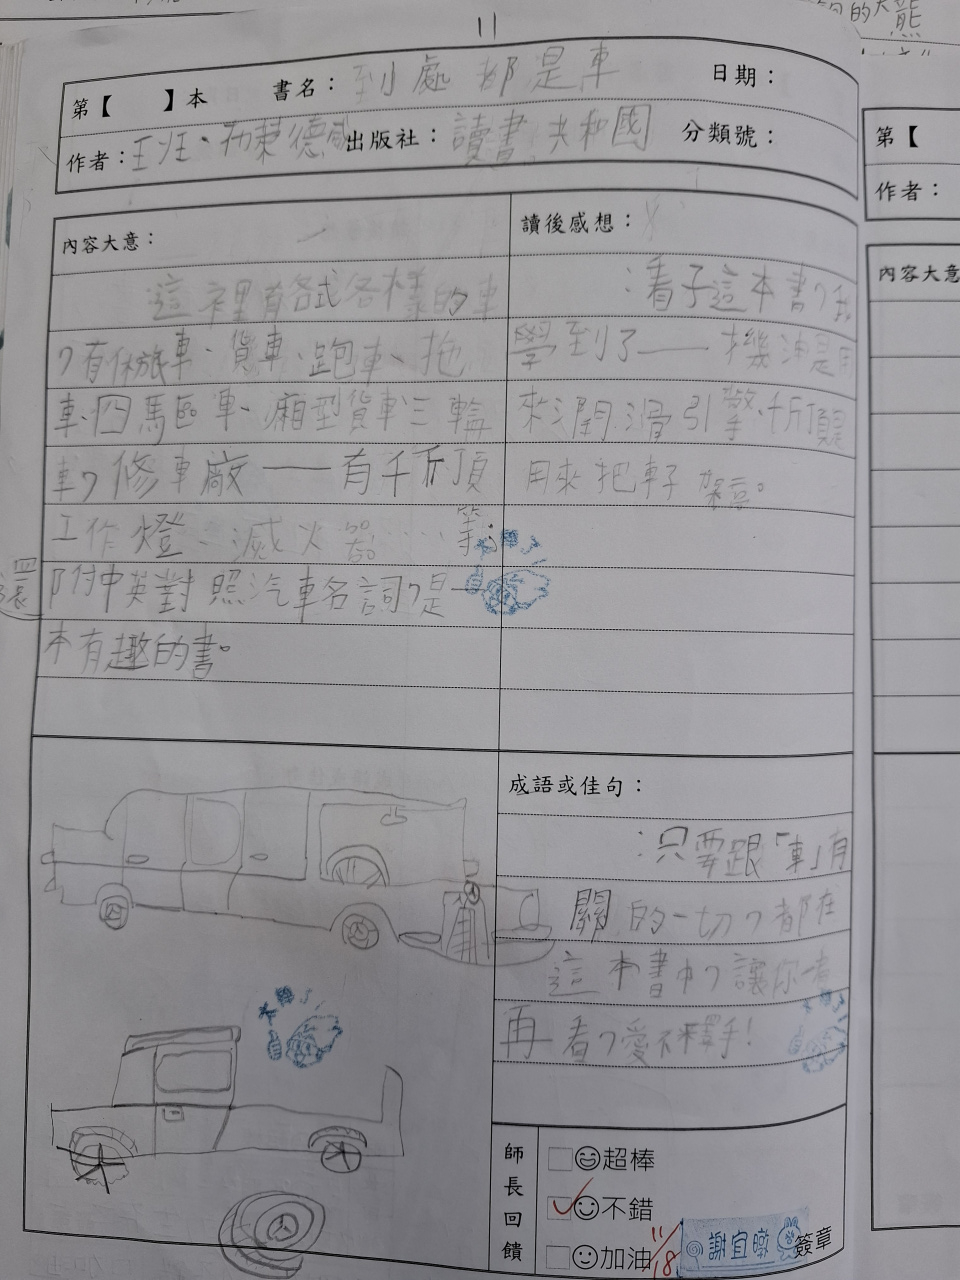 的大熊
11
第【　　】本　書名：到處都是車　日期：
作者：　出版社：讀書共和國　分類號：
內容大意：
這裡有各式各樣的車
，有休旅車、貨車、跑車、拖
車、四馬區車、廂型貨車三輪
車，修車廠——有千斤頂
工作燈、滅火器……等
還附中英對照汽車名詞，是一
本有趣的書。
讀後感想：
：看了這本書，我
學到了——機油是用
來潤滑引擎，千斤頂是
用來把車子架高。
成語或佳句：
：只要跟「車」有
關的一切，都在
這本書中，讓你一看
再看，愛不釋手！
師長回饋
超棒
不錯
加油
11/18
謝宜
簽章
第【
作者：
內容大意